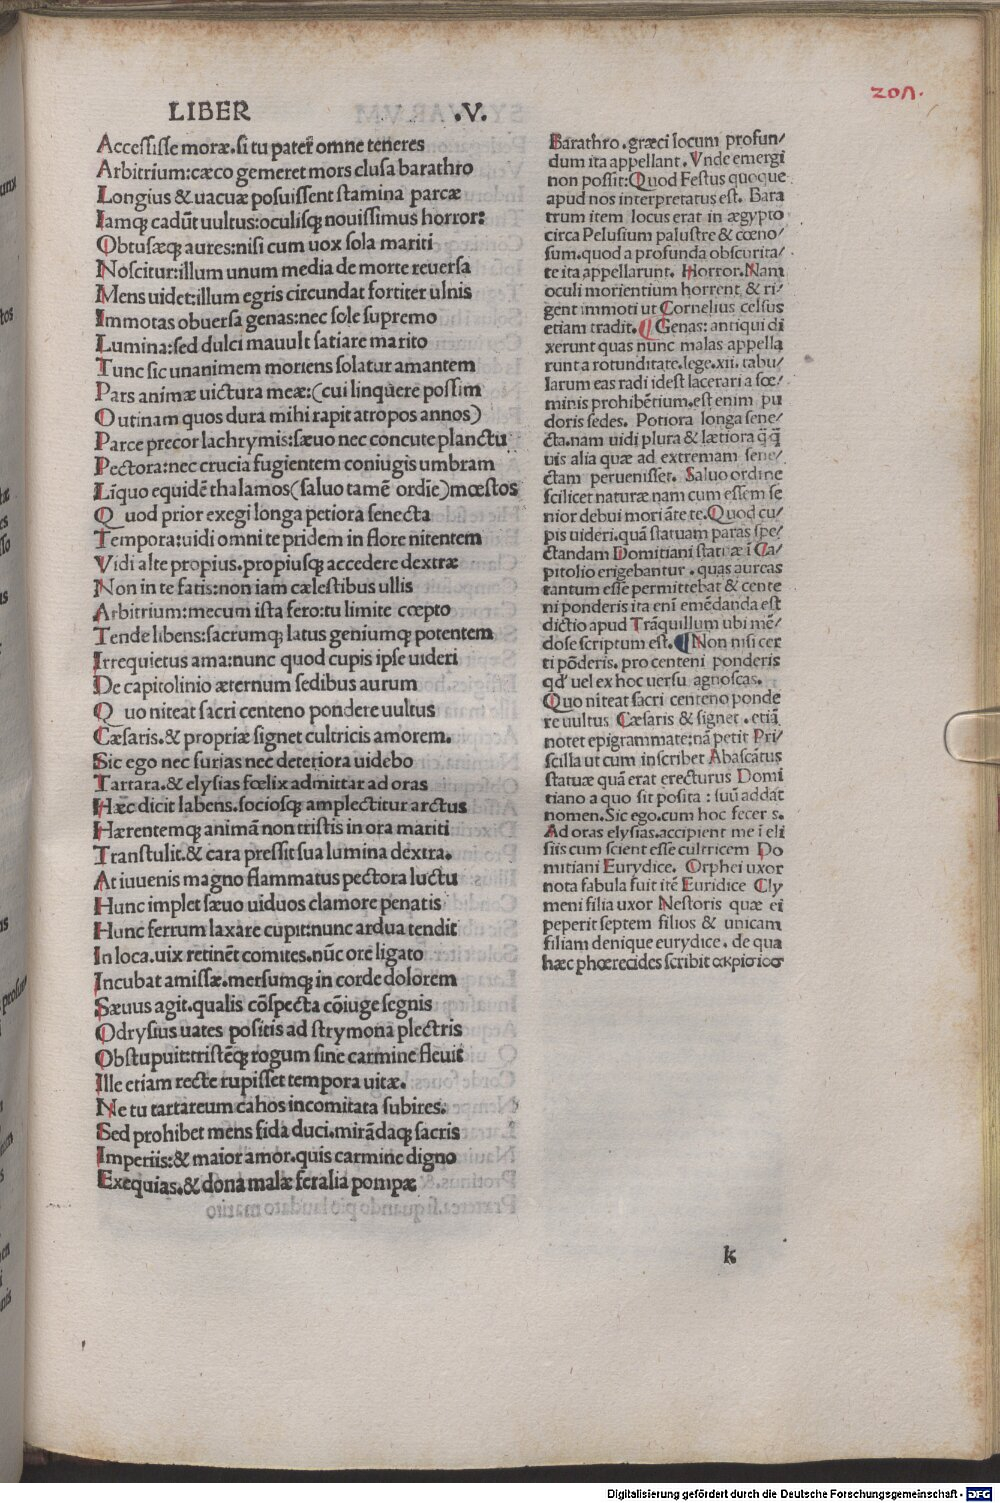 LIBER .V.
201.
Accessisse moræ.si tu pater omne teneres
Arbitrium:cæco gemeret mors clusa barathro
Longius & uacuæ posuissent stamina parcæ
Iamqꝫ cadūt uultus:oculisqꝫ nouissimus horror:
Obtusæqꝫ aures:nisi cum uox sola mariti
Noscitur:illum unum media de morte reuersa
Mens uidet:illum egris circundat fortiter ulnis
Immotas obuersa genas:nec sole supremo
Lumina:sed dulci mauult satiare marito
Tunc sic unanimem moriens solatur amantem
Pars animæ uictura meæ:(cui linquere possim
O utinam quos dura mihi rapit atropos annos)
Parce precor lachrymis:sæuo nec concute planctu
Pectora:nec crucia fugientem coniugis umbram
Līquo equidē thalamos(saluo tamē ordīe)mœstos
Quod prior exegi longa petiora senecta
Tempora:uidi omni te pridem in flore nitentem
Vidi alte propius.propiusqꝫ accedere dextræ
Non in te fatis:non iam cælestibus ullis
Arbitrium:mecum ista fero:tu limite cœpto
Tende libens:sacrumqꝫ latus geniumqꝫ potentem
Irrequietus ama:nunc quod cupis ipse uideri
De capitolinio æternum sedibus aurum
Quo niteat sacri centeno pondere uultus
Cæsaris.& propriæ signet cultricis amorem.
Sic ego nec furias nec deteriora uidebo
Tartara.& elysias fœlix admittar ad oras
Hæc dicit labens.sociosqꝫ amplectitur arctus
Hærentemqꝫ animā non tristis in ora mariti
Transtulit.& cara pressit sua lumina dextra.
At iuuenis magno flammatus pectora luctu
Hunc implet sæuo uiduos clamore penatis
Hunc ferrum laxare cupit:nunc ardua tendit
In loca.uix retinēt comites.nūc ore ligato
Incubat amissæ.mersumqꝫ in corde dolorem
Sæuus agit.qualis cōspecta cōiuge segnis
Odrysius uates positis ad strymona plectris
Obstupuit:tristēqꝫ rogum sine carmine fleuit
Ille etiam recte rupisset tempora uitæ.
Ne tu tartareum cahos incomitata subires:
Sed prohibet mens fida duci.mirādaqꝫ sacris
Imperiis:& maior amor.quis carmine digno
Exequias.& dona malæ feralia pompæ
Barathro.græci locum profun/
dum ita appellant.Vnde emergi
non possit:Quod Festus quoque
apud nos interpretatus est. Bara
trum item locus erat in ægypto
circa Pelusium palustre & cœno/
sum.quod a profunda obscurita/
te ita appellarunt. Horror.Nam
oculi morientium horrent & ri/
gent immoti ut Cornelius celsus
etiam tradit. Genas: antiqui di
xerunt quas nunc malas appella
runt a rotunditate.lege.xii.tabu/
larum eas radi idest lacerari a fœ/
minis prohibētium.est enim pu
doris sedes. Potiora longa sene/
cta.nam uidi plura & lætiora q̄ q̄
uis alia quæ ad extremam sene/
ctam peruenisset. Saluo ordine
scilicet naturæ nam cum essem se
nior debui mori āte te.Quod cu/
pis uideri.quā statuam paras spe/
ctandam Domitiani statuæ ī Ca/
pitolio erigebantur.quas aureas
tantum esse permittebat & cente
ni ponderis ita enī emēdanda est
dictio apud Trāquillum ubi mē/
dose scriptum est. Non nisi cer
ti pōderis.pro centeni ponderis
qd' uel ex hoc uersu agnoscas.
Quo niteat sacri centeno ponde
re uultus Cæsaris & signet.etiā
notet epigrammate:nā petit Pri/
scilla ut cum inscribet Abascātus
statuæ quā erat erecturus Domi
tiano a quo sit posita : suū addat
nomen.Sic ego.cum hoc fecer s.
Ad oras elysias.accipient me ī eli
siis cum scient esse cultricem Do
mitiani Eurydice. Orphei uxor
nota fabula fuit itē Euridice Cly
meni filia uxor Nestoris quæ ei
peperit septem filios & unicam
filiam denique eurydice.de qua
hæc phœrecides scribit ακρισιοσ
k
Digitalisierung gefördert durch die Deutsche Forschungsgemeinschaft - DFG